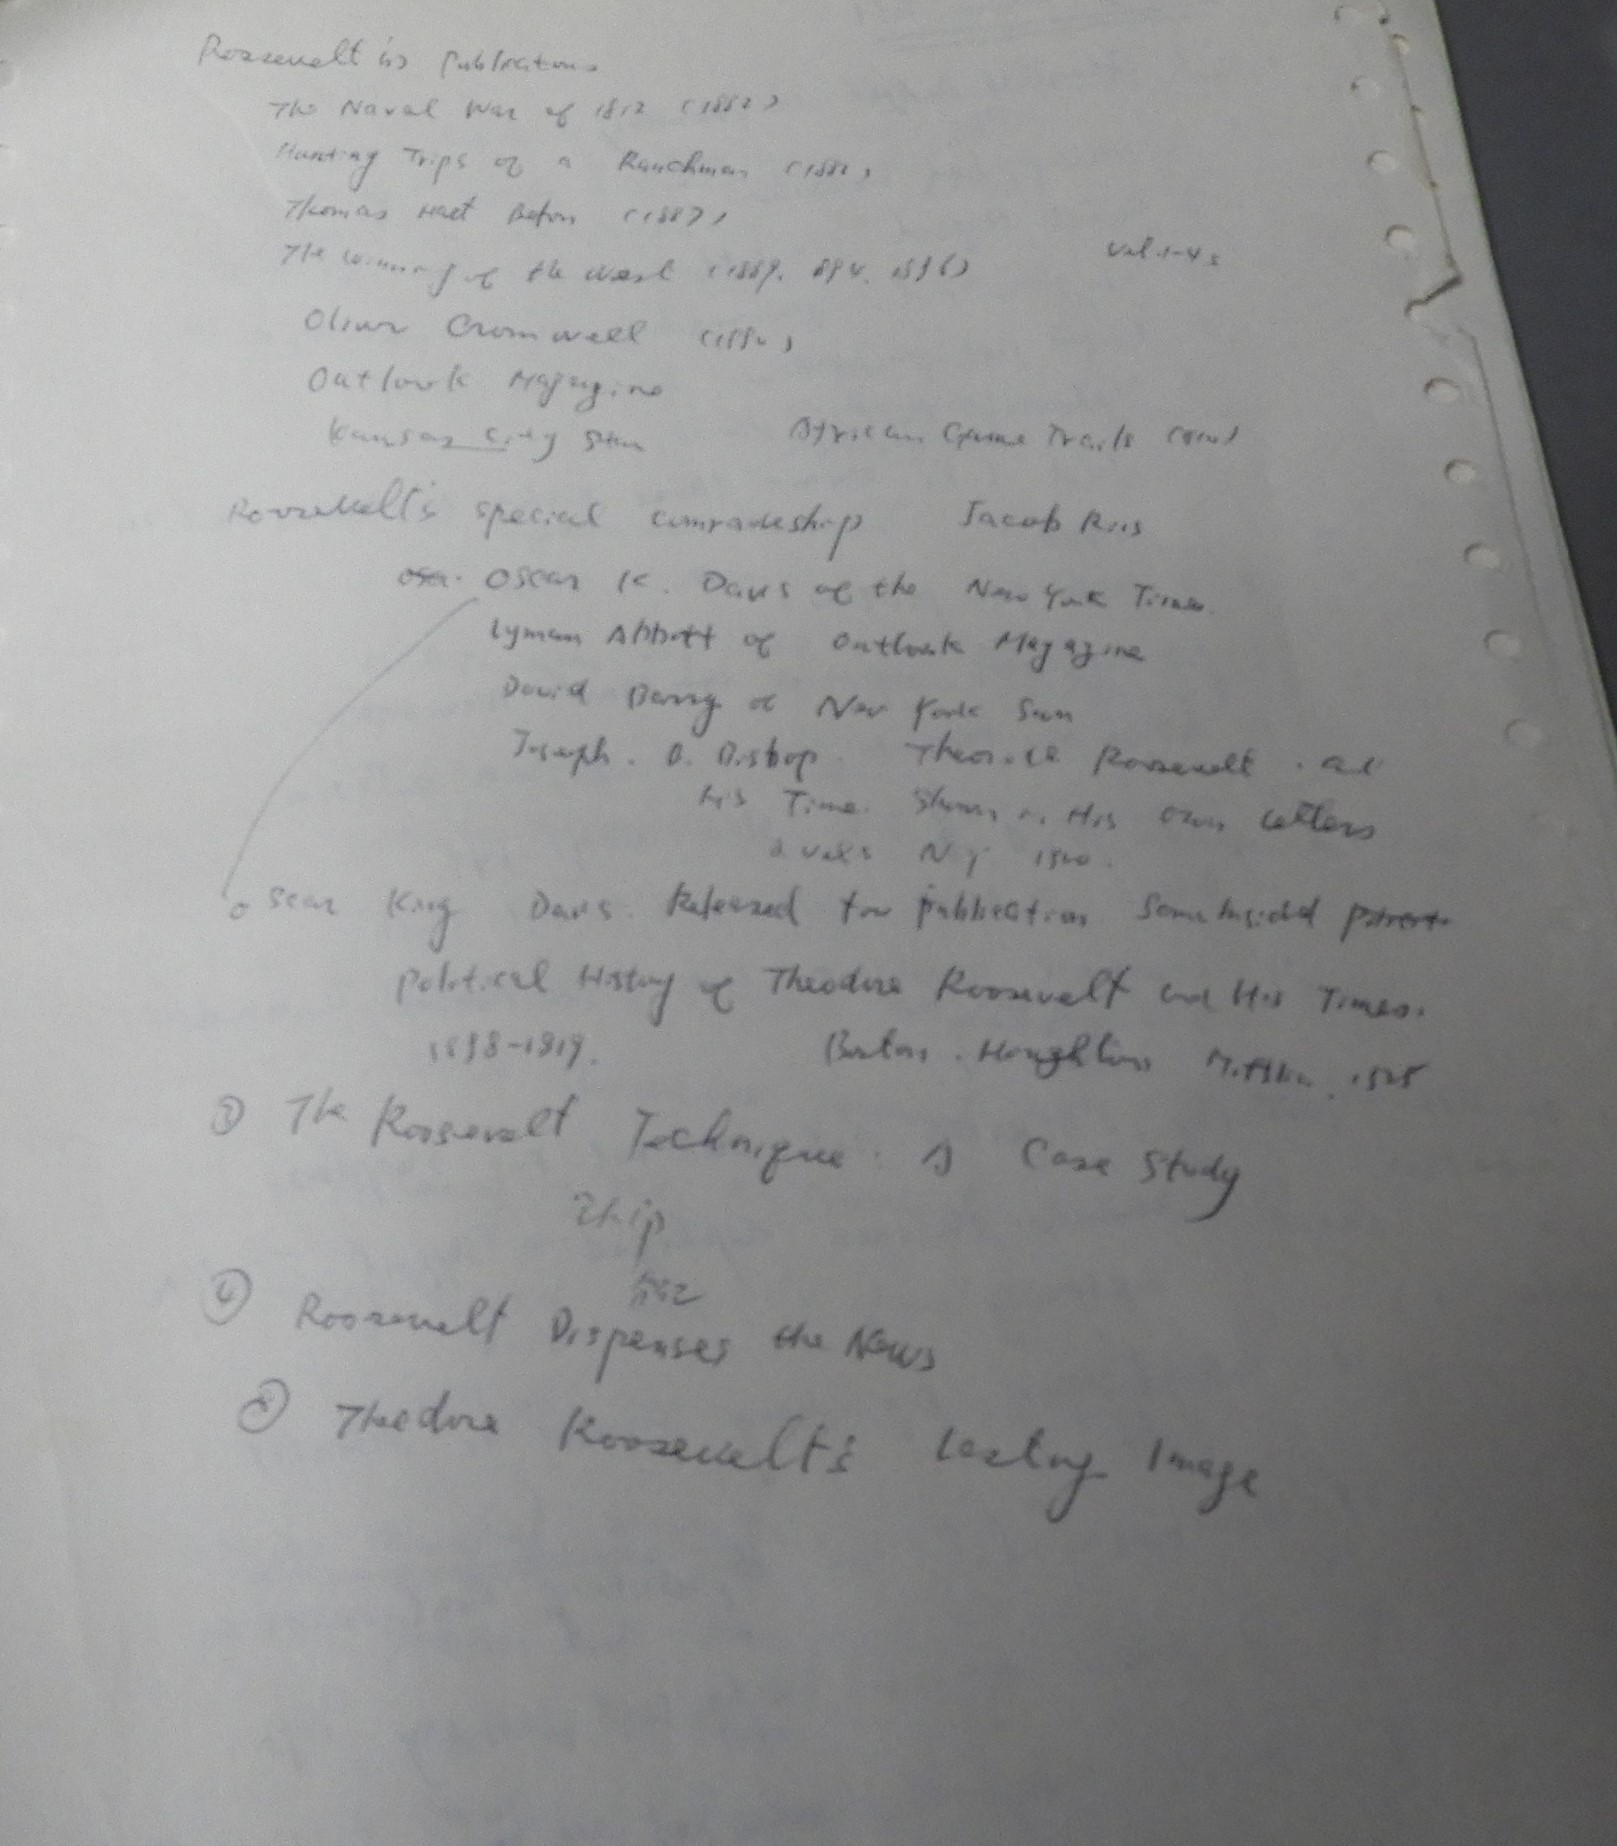 Roosevelt's Publications
The Naval War of 1812 (1882)
Hunting Trips of a Ranchman
Thomas Hart Beton (1887)
The Winning of the West (1889. 894. 1896) Vol 1-4s
Oliver Cromwell
Outlook Magazine
Kansas City Star African Game Trails
Roosevelt's special comradeship Jacob Riis
Oscar K. Davis of the New York Times.
Lyman Abbott of Outlook Magazine
David Barry of New York Sun
Joseph. B. Bishop. Theodore Roosevelt and
his Time. Shown in His Own Letters
2 vols N Y 1920.
Oscar King Davis. Released for publication Some Insided
Political History of Theodore Roosevelt and His Times.
1898-1919. Boston. Houghton Mifflin, 1925
③ The Roosevelt Technique. A Case Study
④ Roosevelt Dispenses the News
⑤ Theodore Roosevelt's Lasting Image